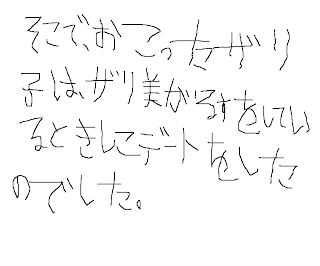 そこで、おこったザリ
子は、ザリ美がるすをしてい
るときしてデートをした
のでした。